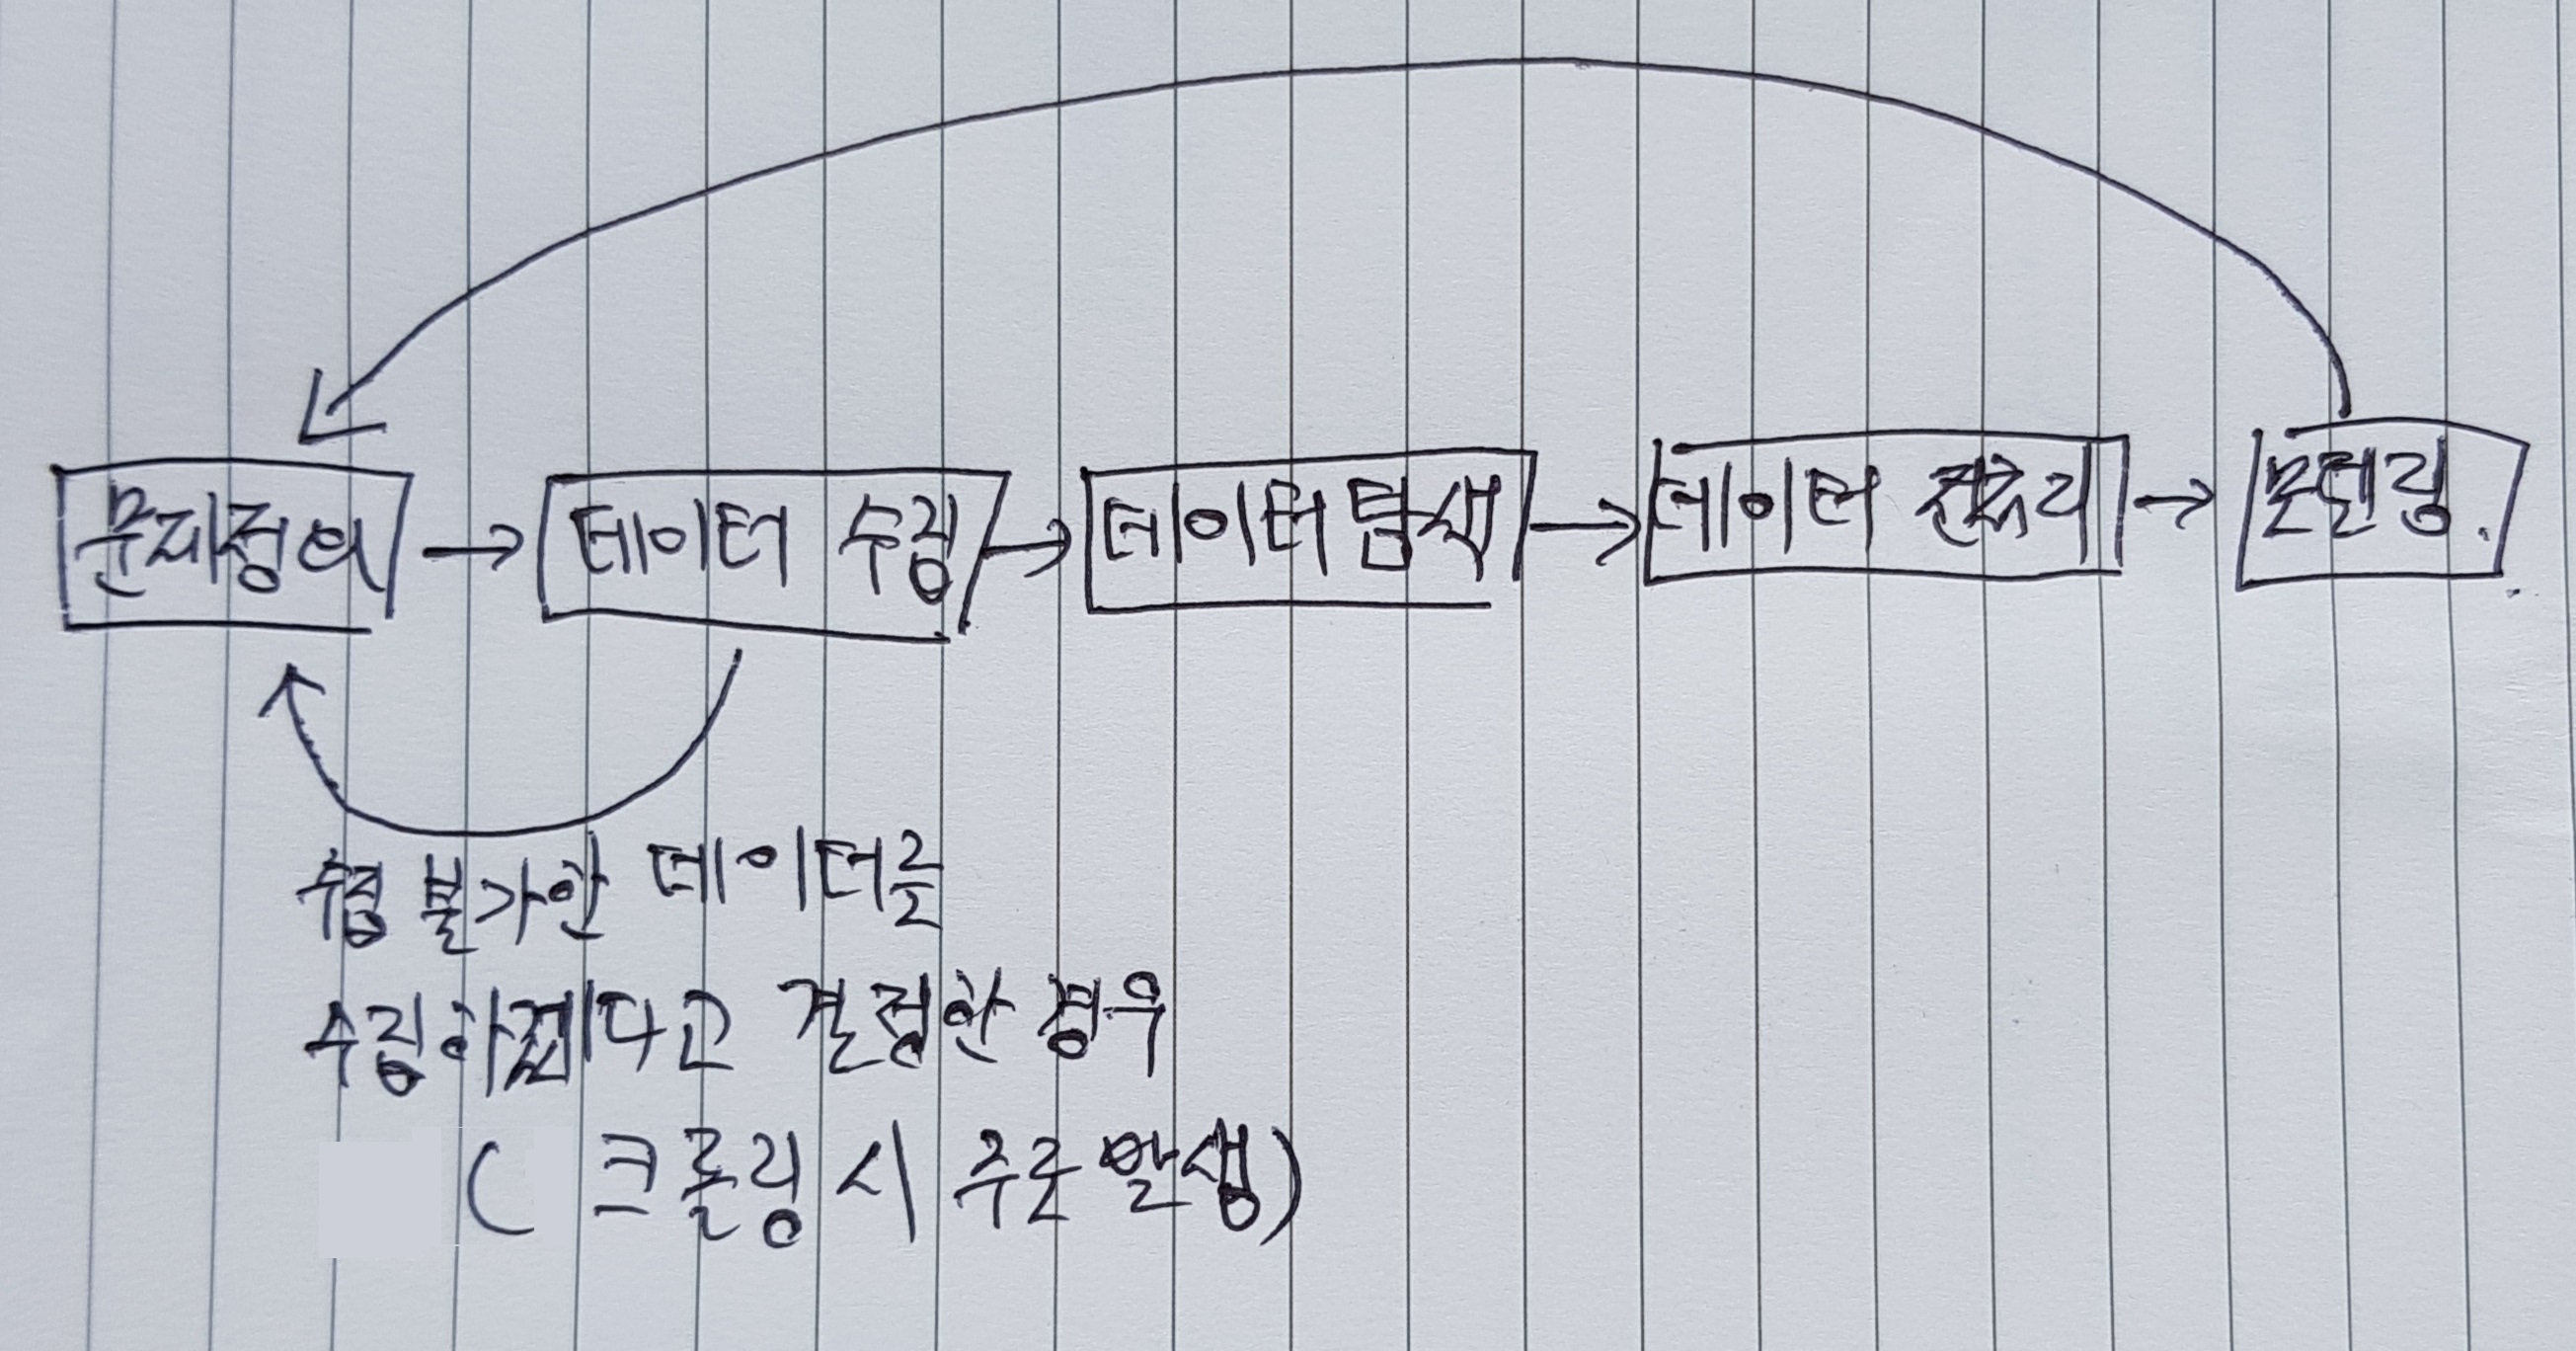 문제정의 → 데이터 수집 → 데이터 탐색 → 데이터 전처리 → 모델링.
수집 불가한 데이터를
수집하겠다고 결정한 경우
( 크롤링 시 주로 발생)